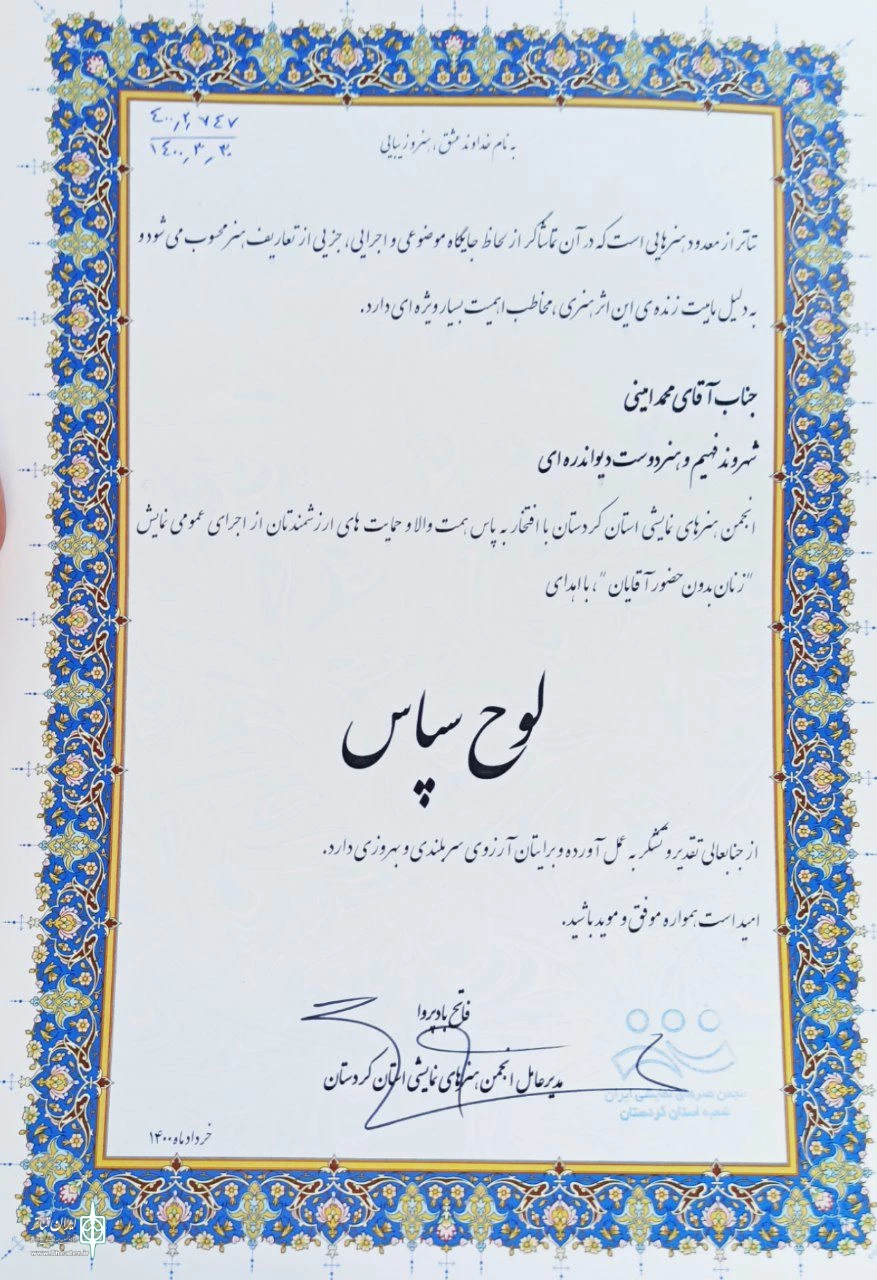 ۴۰۰٫۲٫۷۴۷
۱۴۰۰٫۳٫۳۰
به نام خداوند عشق، هنر و زیبایی
تئاتر از معدود هنرهایی است که در آن تماشاگر از لحاظ جایگاه موضوعی و اجرایی، جزیی از تعاریف هنر محسوب می شود و
به دلیل ماهیت زنده ی این اثر هنری، مخاطب اهمیت بسیار ویژه ای دارد.
جناب آقای محمد امینی
شهروند فهیم و هنردوست دیواندره ای
انجمن هنرهای نمایشی استان کردستان با افتخار به پاس همت والا و حمایت های ارزشمندتان از اجرای عمومی نمایش
"زنان بدون حضور آقایان"، با اهدای
لوح سپاس
از جنابعالی تقدیر و تشکر به عمل آورده و برایتان آرزوی سربلندی و بهروزی دارد.
امید است همواره موفق و موید باشید.
فاتح بادپروا
مدیرعامل انجمن هنرهای نمایشی استان کردستان
انجمن هنرهای نمایشی ایران
شعبه استان کردستان
خرداد ماه ۱۴۰۰
ایران تئاتر
www.theater.ir